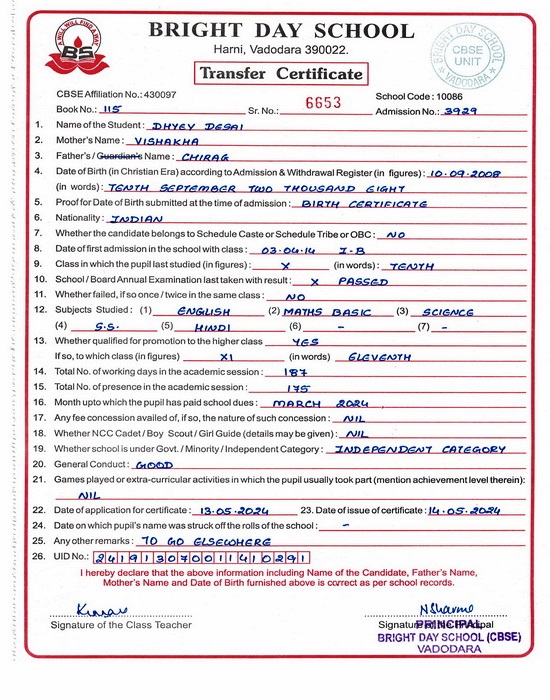 A WILL WILL FIND A WAY
BS
BRIGHT DAY SCHOOL
Harni, Vadodara 390022.
Transfer Certificate
BRIGHT DAY SCHOOL
CBSE
UNIT
VADODARA
CBSE Affiliation No.: 430097
School Code : 10086
Book No.: 115 Sr. No.: 6653 Admission No.: 3929
1. Name of the Student : DHYEY DESAI
2. Mother's Name : VISHAKHA
3. Father's / Guardian's Name : CHIRAG
4. Date of Birth (in Christian Era) according to Admission & Withdrawal Register (in figures) : 10.09.2008
(in words) : TENTH SEPTEMBER TWO THOUSAND EIGHT
5. Proof for Date of Birth submitted at the time of admission : BIRTH CERTIFICATE
6. Nationality : INDIAN
7. Whether the candidate belongs to Schedule Caste or Schedule Tribe or OBC : NO
8. Date of first admission in the school with class : 03.04.14 I-B
9. Class in which the pupil last studied (in figures) : X (in words) : TENTH
10. School / Board Annual Examination last taken with result : X PASSED
11. Whether failed, if so once / twice in the same class : NO
12. Subjects Studied : (1) ENGLISH (2) MATHS BASIC (3) SCIENCE
(4) S.S. (5) HINDI (6) - (7) -
13. Whether qualified for promotion to the higher class YES
If so, to which class (in figures) XI (in words) ELEVENTH
14. Total No. of working days in the academic session : 187
15. Total No. of presence in the academic session : 175
16. Month upto which the pupil has paid school dues : MARCH 2024
17. Any fee concession availed of, if so, the nature of such concession : NIL
18. Whether NCC Cadet / Boy Scout / Girl Guide (details may be given) : NIL
19. Whether school is under Govt. / Minority / Independent Category : INDEPENDENT CATEGORY
20. General Conduct : GOOD
21. Games played or extra-curricular activities in which the pupil usually took part (mention achievement level therein):
NIL
22. Date of application for certificate : 13.05.2024 23. Date of issue of certificate : 14.05.2024
24. Date on which pupil's name was struck off the rolls of the school : -
25. Any other remarks : TO GO ELSEWHERE
26. UID No.: 241913070011410291
I hereby declare that the above information including Name of the Candidate, Father's Name,
Mother's Name and Date of Birth furnished above is correct as per school records.
NSharma
Signature of the Class Teacher
Signature of the Principal
PRINCIPAL
BRIGHT DAY SCHOOL (CBSE)
VADODARA